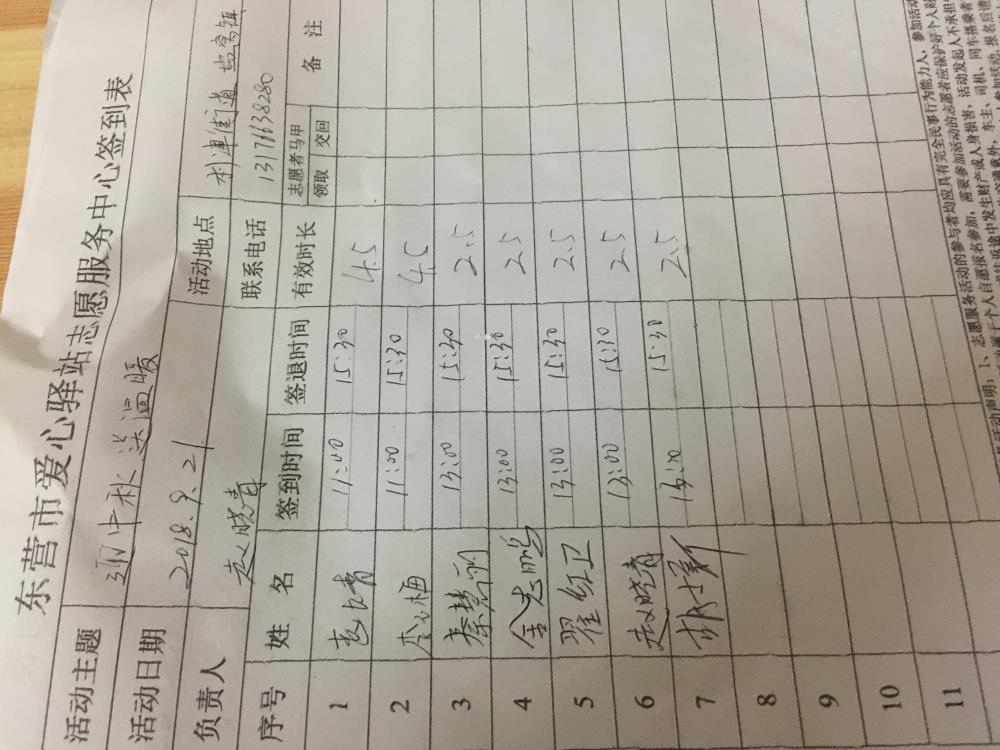 东营市爱心驿站志愿服务中心签到表
活动主题 迎中秋 送温暖
活动日期 2018.9.21 活动地点 利津街道 盐窝镇
负责人 赵晓青 联系电话 13176638280
序号 姓名 签到时间 签退时间 有效时长 志愿者马甲 领取 交回 备注
1 11:00 15:30 4.5
2 李心梅 11:00 15:30 4.5
3 秦慧丽 13:00 15:30 2.5
4 金志鹏 13:00 15:30 2.5
5 翟红卫 13:00 15:30 2.5
6 赵晓青 13:00 15:30 2.5
7 13:00 15:30 2.5
8
9
10
11
活动声明：1、志愿服务活动的参与者均应具有完全民事行为能力人，参加活动
个人自愿报名参加，需要参加活动的志愿者应保护好个人财
途中发生财产或人身损害，活动发起人不承担
意外，车主、司机、同车搭乘者
参加活动，报名后请